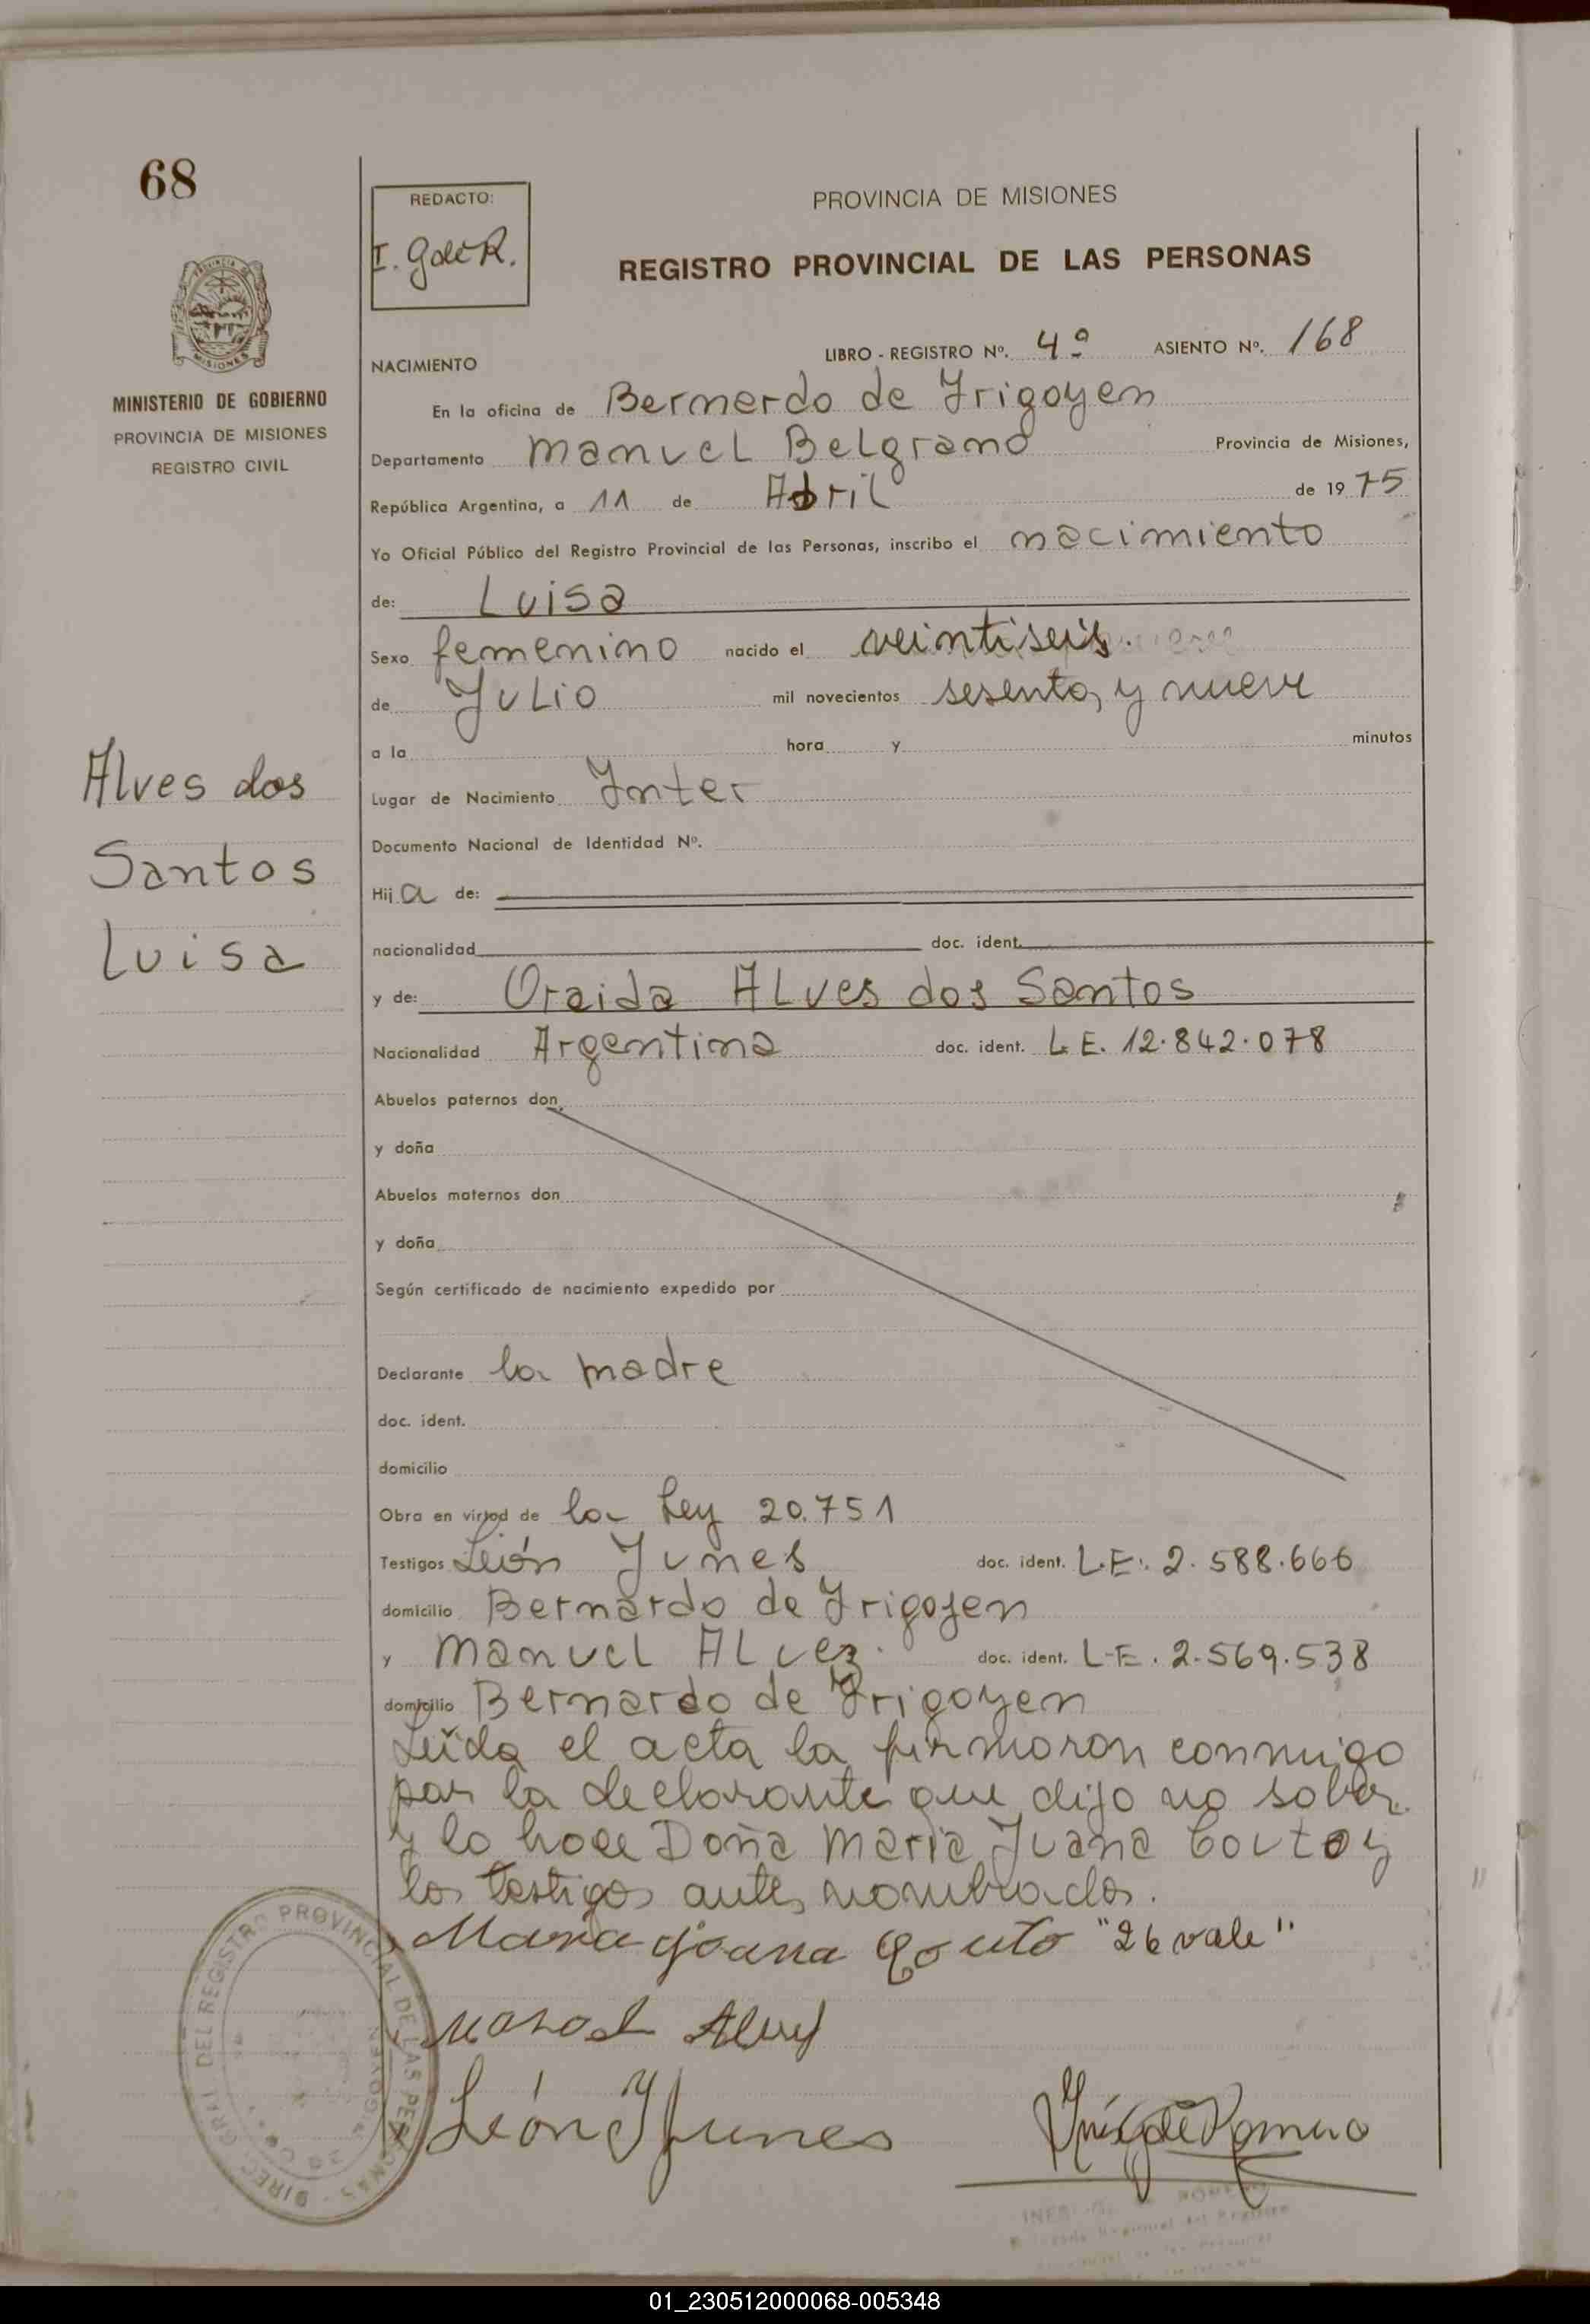 68
REDACTO:
I. G de R.
PROVINCIA DE MISIONES
REGISTRO PROVINCIAL DE LAS PERSONAS
MISIONES
MINISTERIO DE GOBIERNO
PROVINCIA DE MISIONES
REGISTRO CIVIL
NACIMIENTO LIBRO - REGISTRO Nº. 4º ASIENTO Nº. 168
En la oficina de Bernardo de Yrigoyen
Departamento Manuel Belgrano Provincia de Misiones,
República Argentina, a 11 de Abril de 1975
Yo Oficial Público del Registro Provincial de las Personas, inscribo el nacimiento
de: Luisa
Sexo femenino nacido el veintiseis.
de Julio mil novecientos sesenta y nueve
a la hora y minutos
Alves dos
Santos
Luisa
Lugar de Nacimiento Inter
Documento Nacional de Identidad Nº.
Hija de:
nacionalidad doc. ident.
y de: Oraida Alves dos Santos
Nacionalidad Argentina doc. ident. L.E. 12.842.078
Abuelos paternos don
y doña
Abuelos maternos don
y doña
Según certificado de nacimiento expedido por
Declarante la madre
doc. ident.
domicilio
Obra en virtud de la Ley 20.751
Testigos León Yunes doc. ident. L.E. 2.588.666
domicilio Bernardo de Yrigoyen
y Manuel Alvez. doc. ident. L.E. 2.569.538
domicilio Bernardo de Yrigoyen
Leída el acta la firmaron conmigo
por la declarante que dijo no saber
y lo hace Doña Maria Juana Couto y
los testigos antes nombrados.
Maria Joana Couto "26 vale"
Manoel Alves
León Yunes
DIREC. GRAL. DEL REGISTRO PROVINCIAL DE LAS PERSONAS
01_230512000068-005348